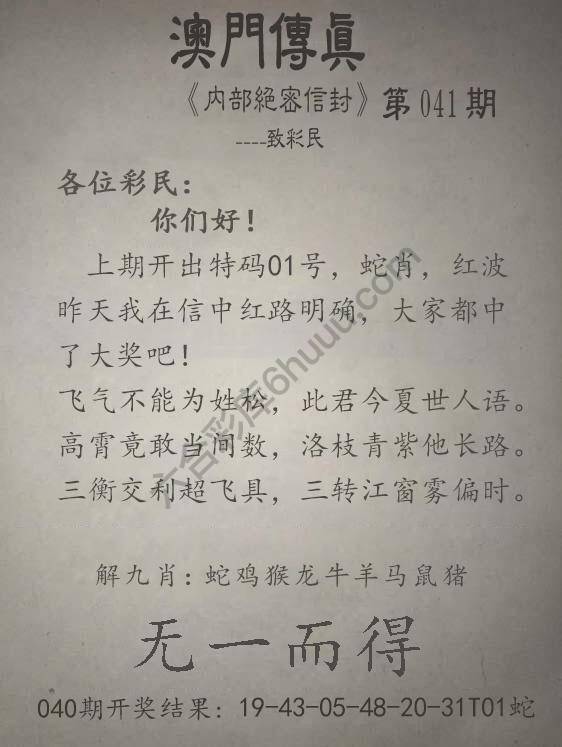 澳門傳真
《内部絕密信封》第041期
----致彩民
各位彩民：
你们好！
上期开出特码01号，蛇肖，红波
昨天我在信中红路明确，大家都中
了大奖吧！
飞气不能为姓松，此君今夏世人语。
高霄竟敢当间数，洛枝青紫他长路。
三衡交利超飞具，三转江窗雾偏时。
解九肖：蛇鸡猴龙牛羊马鼠猪
无一而得
040期开奖结果：19-43-05-48-20-31T01蛇
六合彩库6huuu.com